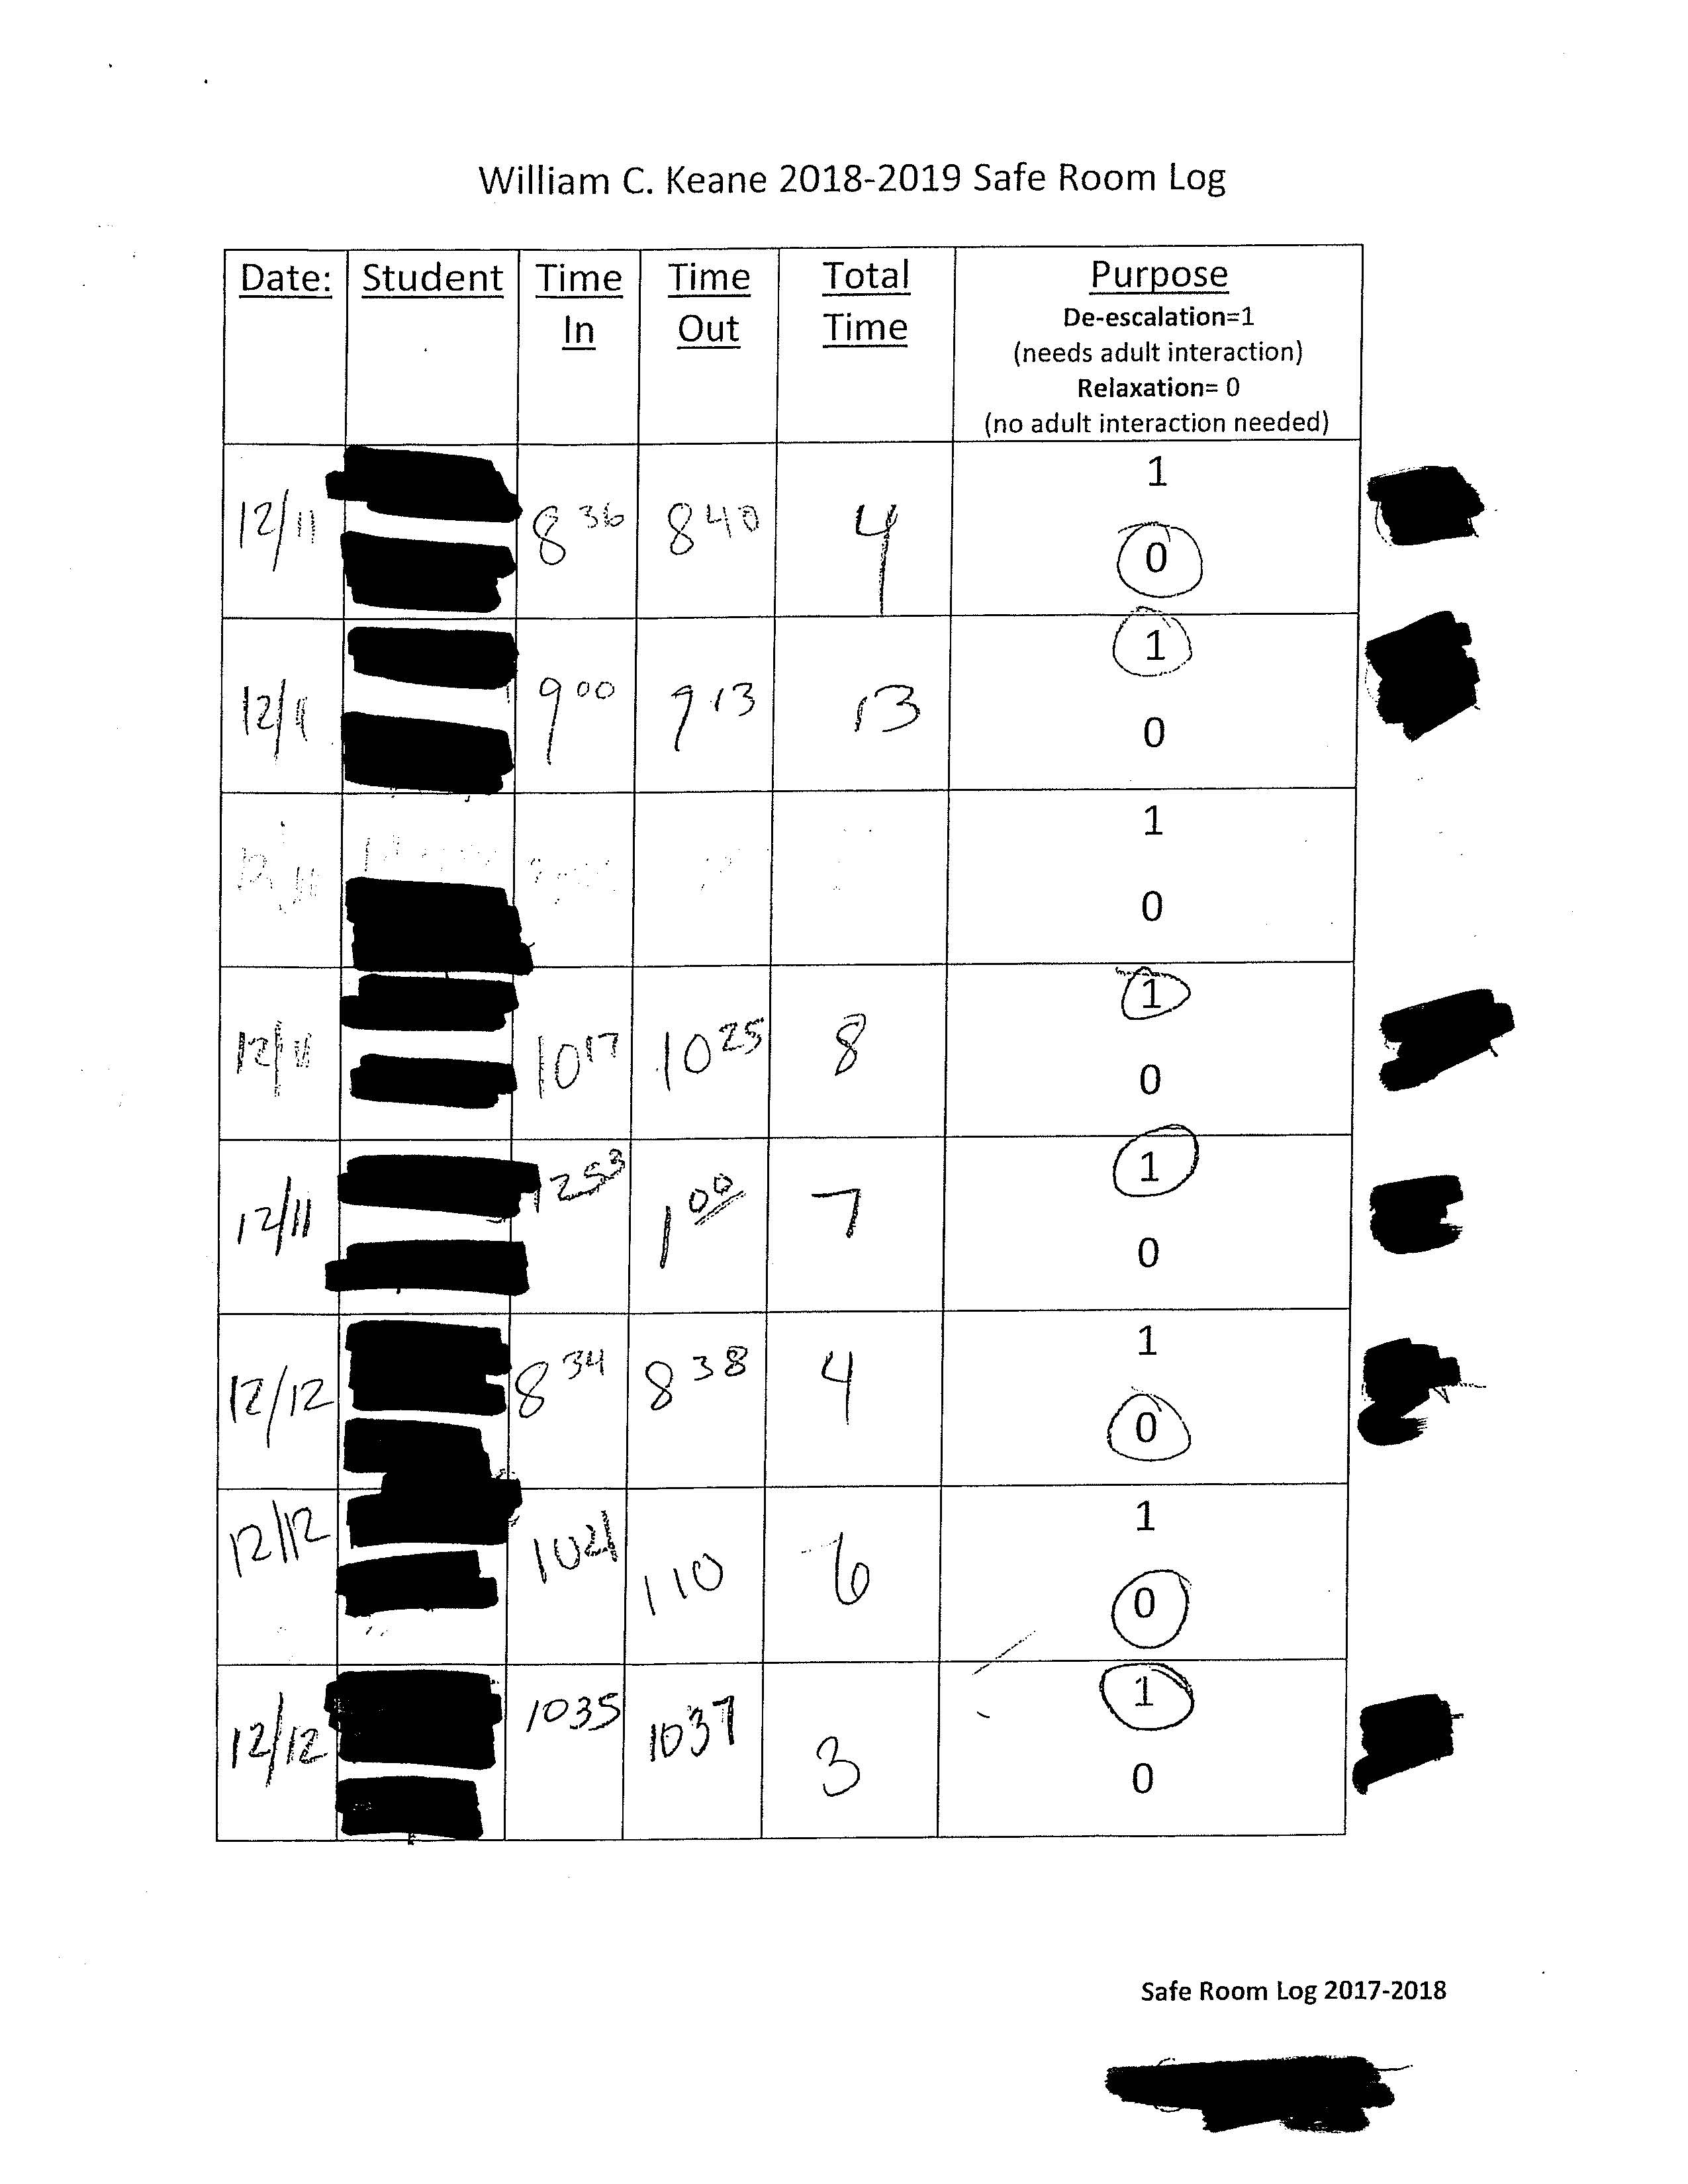 William C. Keane 2018-2019 Safe Room Log
Date: Student Time In Time Out Total Time Purpose
De-escalation=1
(needs adult interaction)
Relaxation= 0
(no adult interaction needed)
12/11 8 36 8 40 4 1 0
12/11 9 00 9 13 13 1 0
12/11 1 0
12/11 10 17 10 25 8 1 0
12/11 12 53 1 00 7 1 0
12/12 8 34 8 38 4 1 0
12/12 110 6 1 0
12/12 1035 1037 3 1 0
Safe Room Log 2017-2018